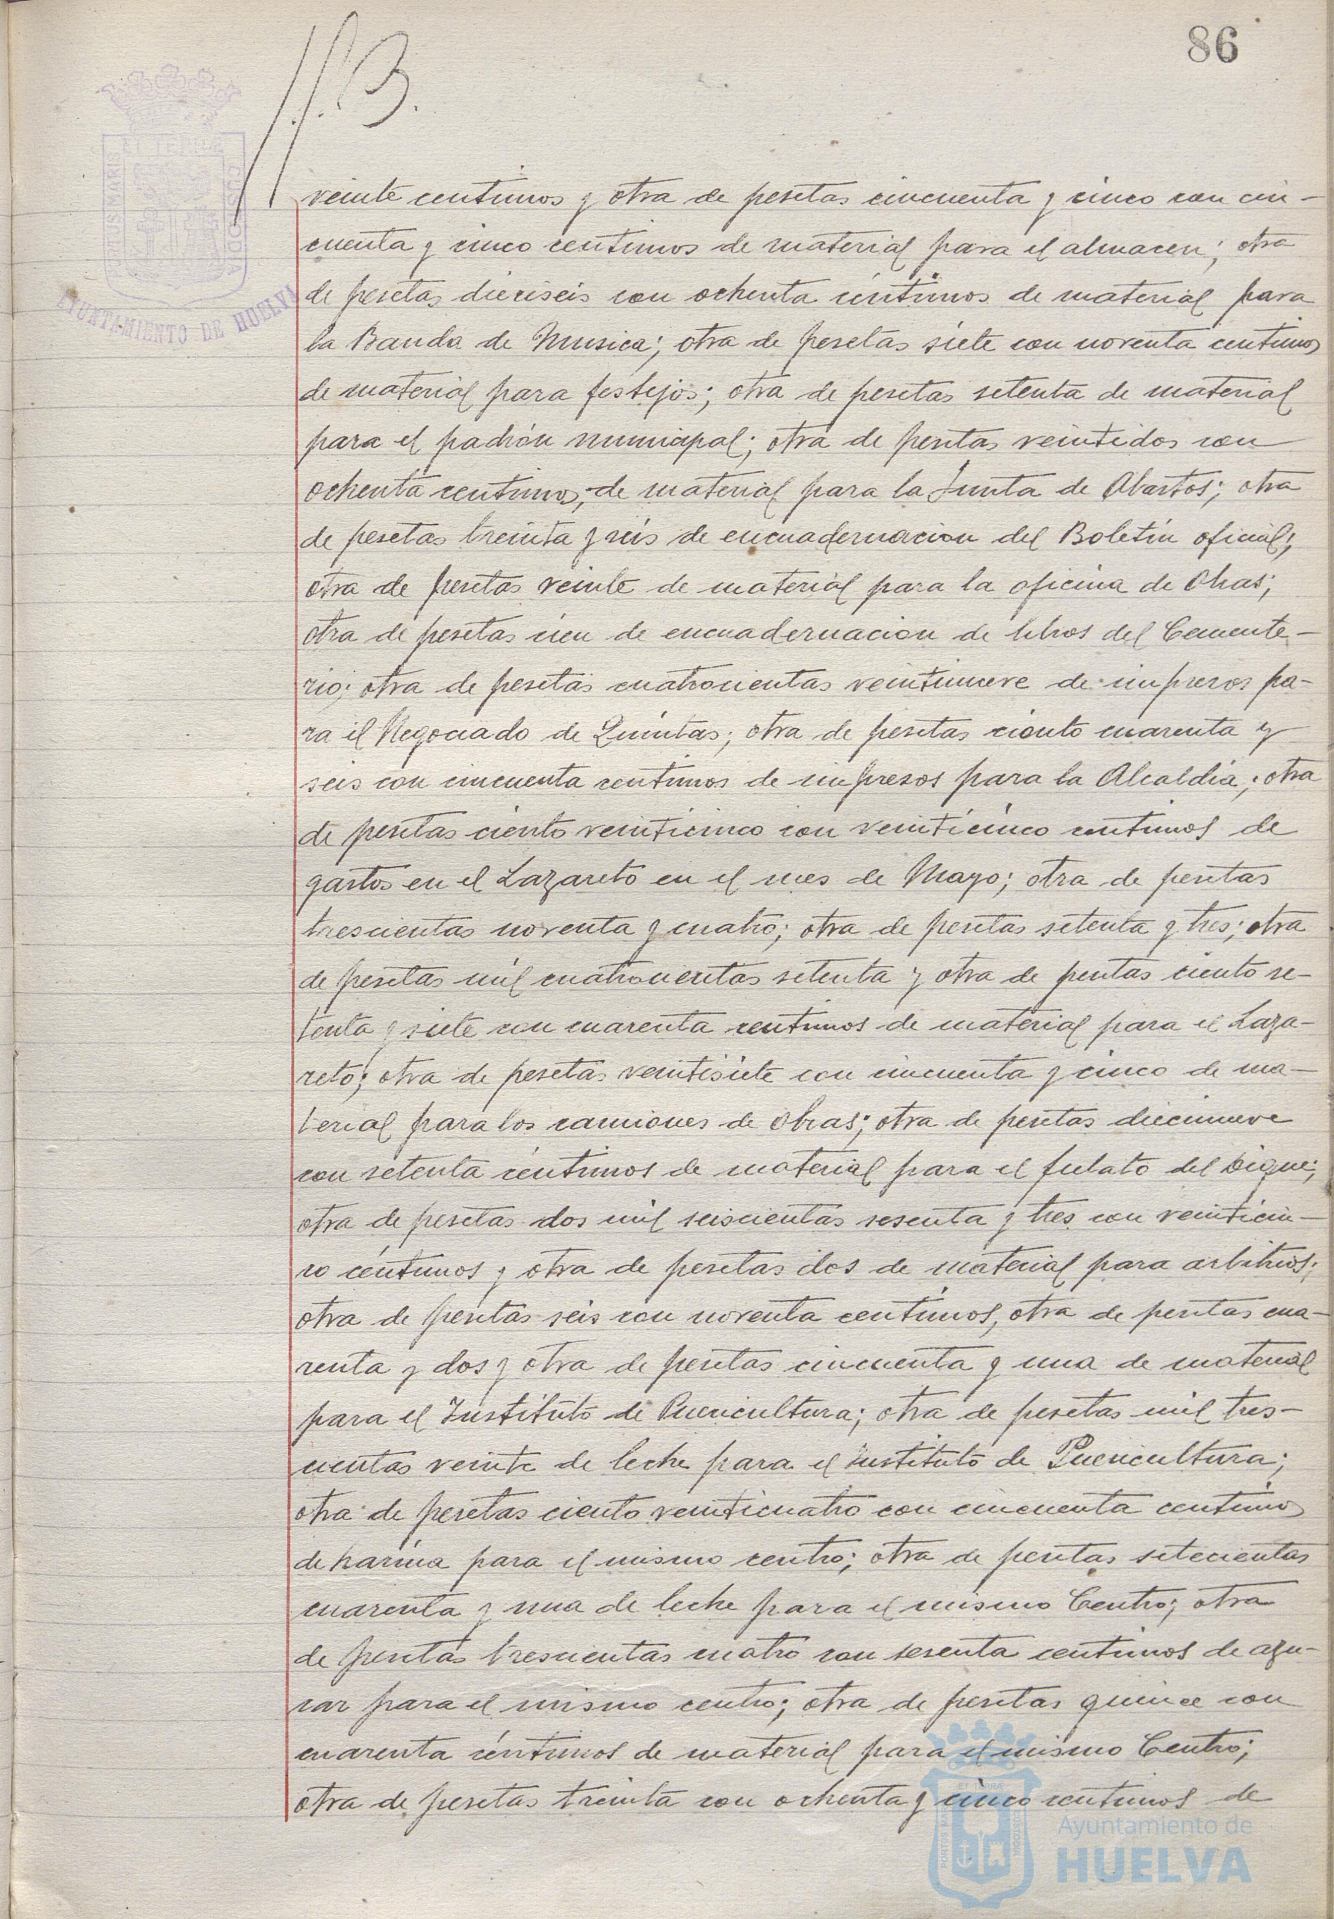 86
veinte centimos y otra de pesetas cincuenta y cinco con cin-
cuenta y cinco centimos de material para el almacen; otra
de pesetas dieciseis con ochenta céntimos de material para
la Banda de Musica; otra de pesetas siete con noventa centimos
de material para festejos; otra de pesetas setenta de material
para el padrón municipal; otra de pesetas veintidos con
ochenta centimos, de material para la Junta de Abastos; otra
de pesetas treinta y seis de encuadernacion del Boletin oficial;
otra de pesetas veinte de material para la oficina de Obras;
otra de pesetas cien de encuadernacion de libros del Cemente-
rio; otra de pesetas cuatrocientas veintinueve de impresos pa-
ra el Negociado de Quintas; otra de pesetas ciento cuarenta y
seis con cincuenta centimos de impresos para la Alcaldia; otra
de pesetas ciento veinticinco con veinticinco centimos de
gastos en el Lazareto en el mes de Mayo; otra de pesetas
trescientas noventa y cuatro; otra de pesetas setenta y tres; otra
de pesetas mil cuatrocientas setenta y otra de pesetas ciento se-
tenta y siete con cuarenta centimos de material para el Laza-
reto; otra de pesetas veintisiete con cincuenta y cinco de ma-
terial para los camiones de Obras; otra de pesetas diecinueve
con setenta céntimos de material para el fielato del Dique;
otra de pesetas dos mil seiscientas sesenta y tres con veinticin-
co céntimos y otra de pesetas dos de material para arbitrios;
otra de pesetas seis con noventa centimos, otra de pesetas cua-
renta y dos y otra de pesetas cincuenta y una de material
para el Instituto de Puericultura; otra de pesetas mil tres-
cientas veinte de leche para el Instituto de Puericultura;
otra de pesetas ciento veinticuatro con cincuenta centimos
de harina para el mismo centro; otra de pesetas setecientas
cuarenta y una de leche para el mismo Centro; otra
de pesetas trescientas cuatro con sesenta centimos de azu-
car para el mismo centro; otra de pesetas quince con
cuarenta céntimos de material para el mismo Centro;
otra de pesetas treinta con ochenta y cinco centimos de
AYUNTAMIENTO DE HUELVA
Ayuntamiento de
HUELVA